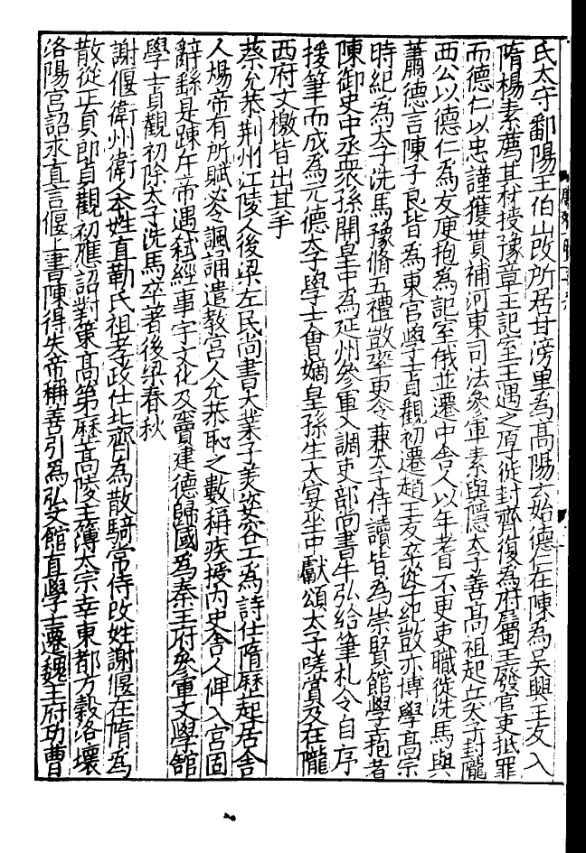 氏太守鄱陽王伯山改所居甘滂里為高陽云始德仁在陳為吳興王友入
隋楊素薦其材授豫章王記室王遇之厚徙封齊復為府屬王廢官吏抵罪
而德仁以忠謹獲貰補河東司法參軍素與隱太子善高祖起兵太子封隴
西公以德仁為友庾抱為記室俄並遷中舍人以年耆不更吏職徙洗馬與
蕭德言陳子良皆為東宮學士貞觀初遷趙王友卒從子紀敳亦博學高宗
時紀為太子洗馬豫脩五禮敳率更令兼太子侍讀皆為崇賢館學士抱者
陳御史中丞眾孫開皇中為延州參軍入調吏部尚書牛弘給筆札令自序
援筆而成為元德太子學士會嫡皇孫生大宴坐中獻頌太子嗟賞及在隴
西府文檄皆出其手
蔡允恭荆州江陵人後梁左民尚書大業子美姿容工為詩仕隋歷起居舍
人煬帝有所賦必令諷誦遣教宮人允恭恥之數稱疾授內史舍人俾入宮固
辭繇是踈斥帝遇弒經事宇文化及竇建德歸國為秦王府參軍文學館
學士貞觀初除太子洗馬卒著後梁春秋
謝偃衛州衛人本姓直勒氏祖孝政仕北齊為散騎常侍改姓謝偃在隋為
散從正員郎貞觀初應詔對策高第歷高陵主簿太宗幸東都方穀洛壞
洛陽宮詔求直言偃上書陳得失帝稱善引為弘文館直學士遷魏王府功曹